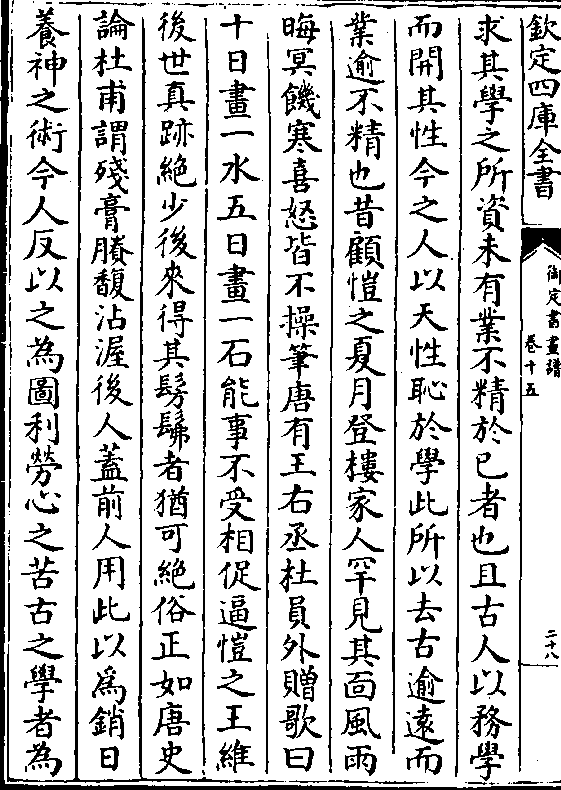 欽定四庫全書
御定書畫譜
卷十五
二十八
求其學之所資未有業不精於已者也且古人以務學
而開其性今之人以天性恥於學此所以去古逾遠而
業逾不精也昔顧愷之夏月登樓家人罕見其面風雨
晦冥饑寒喜怒皆不操筆唐有王右丞杜員外贈歌曰
十日畫一水五日畫一石能事不受相促逼愷之王維
後世真跡絶少後來得其髣髴者猶可絶俗正如唐史
論杜甫謂殘膏賸馥沾渥後人葢前人用此以爲銷日
養神之術今人反以之為圖利勞心之苦古之學者為